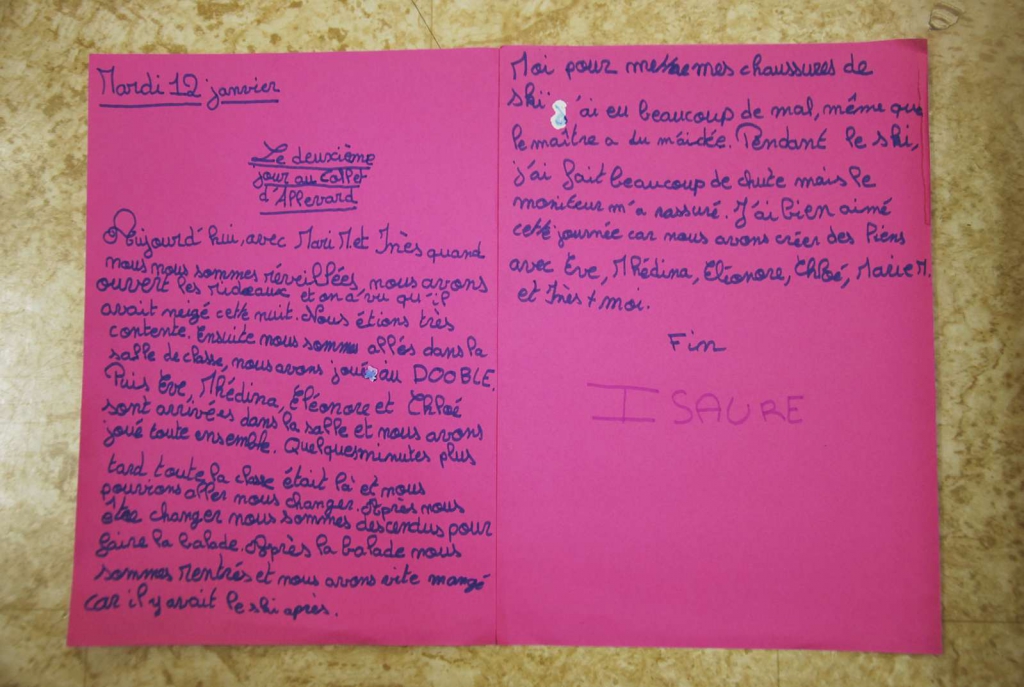 Mardi 12 janvier
Le deuxième
jour au Collet
d'Allevard
Aujourd'hui, avec Mari M et Inès quand
nous nous sommes réveillées, nous avons
ouvert les rideaux et on à vu qu'il
avait neigé cette nuit. Nous étions très
contente. Ensuite nous somme allés dans la
salle de classe, nous avons joué au DOOBLE.
Puis Eve, Mhédina, Eléonore et Chloé
sont arrivées dans la salle et nous avons
joué toute ensemble. Quelques minutes plus
tard toute la classe était là et nous
pouvions aller nous changer. Après nous
être changer nous sommes descendus pour
faire la balade. Après la balade nous
sommes rentrés et nous avons vite mangé
car il y avait le ski après.
Moi pour mettre mes chaussures de
ski j'ai eu beaucoup de mal, même que
le maître a du m'aidée. Pendant le ski,
j'ai fait beaucoup de chute mais le
moniteur m'a rassuré. J'ai bien aimé
cette journée car nous avons créer des liens
avec Eve, Mhédina, Eléonore, Chloé, Marie M.
et Inès + moi.
Fin
ISAURE